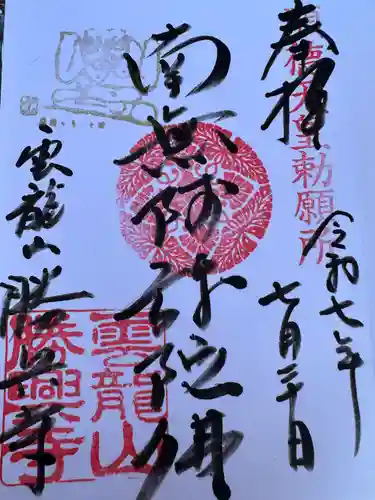 奉拝
順徳天皇勅願所
令和七年
七月二十日
南無阿弥陀佛
雲龍山勝興寺
雲龍山
勝興寺